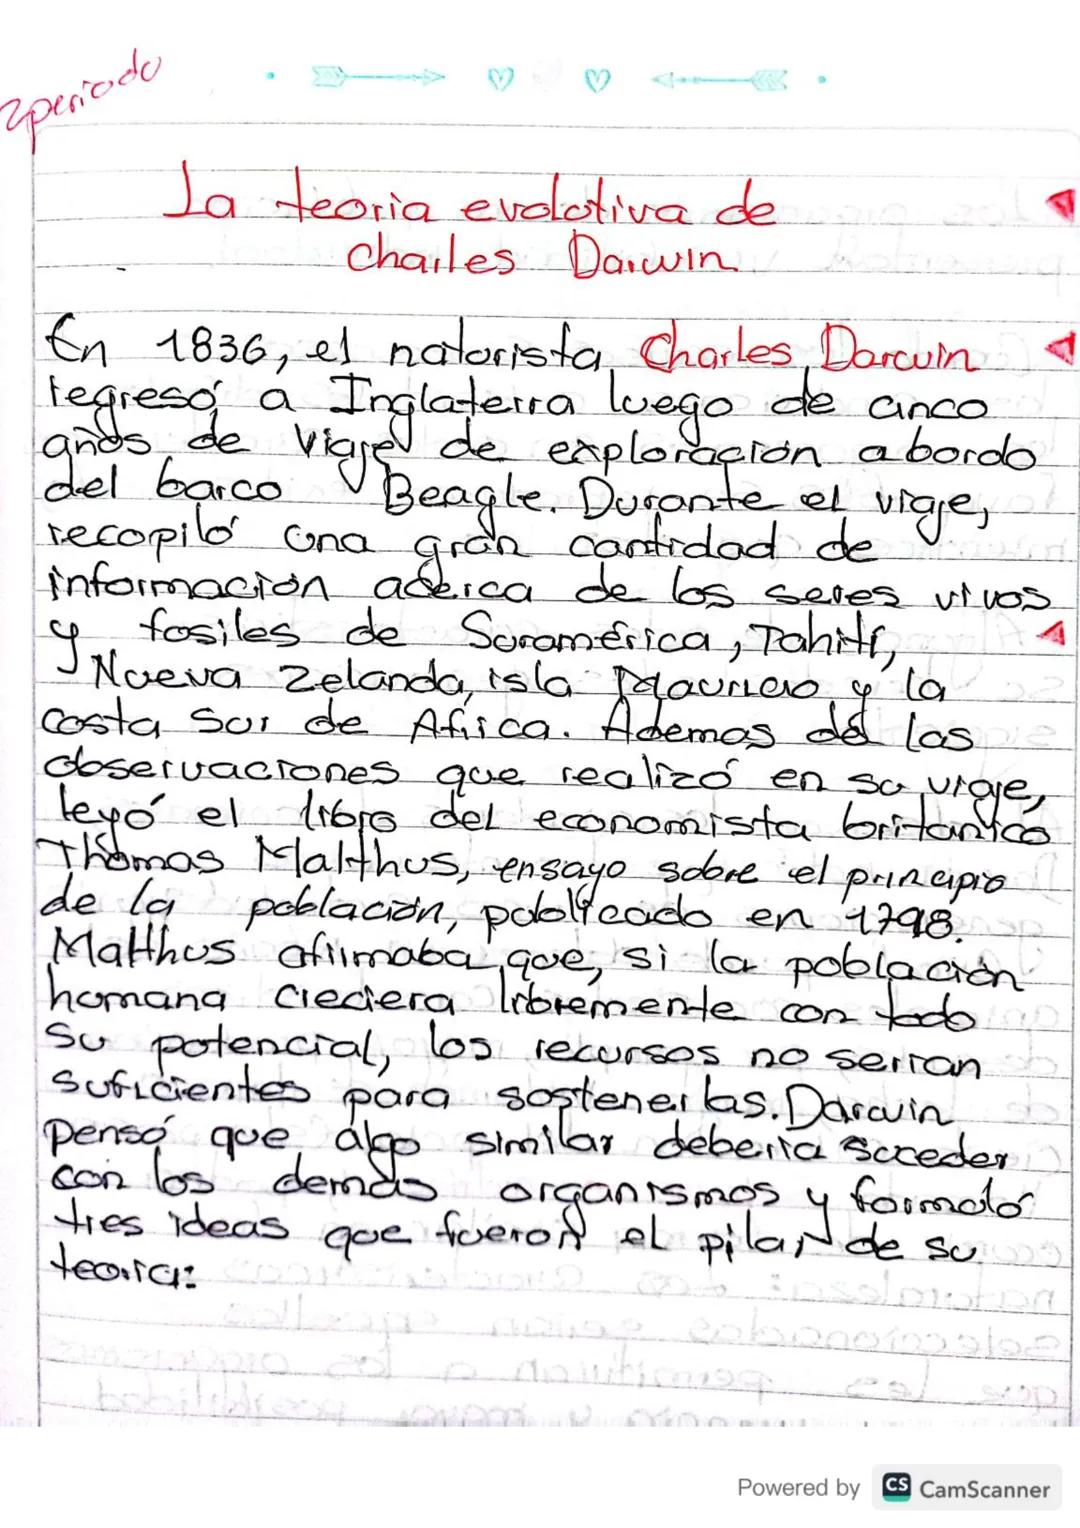 2periodo
La teoria evolotiva de
Charles Darwin
En 1836, el natorista Charles Darwin
regresó a Inglaterra luego de cinco
años de viaje de exploración a bordo
del barco Beagle. Durante el viaje,
recopiló una gran cantidad de
información acerca de los seres vivos
y fosiles de Suramérica, Tahití,
Nueva Zelanda, isla Mauricio y la
costa Sur de Africa. Ademas de las
observaciones que realizó en su viaje,
leyó el libro del economista britanico
Thomas Malthus, ensayo sobre el principio
de la población, publicado en 1798.
Malthus afirmaba que, si la población
humana creciera libremente con todo
su potencial, los recursos no serian
suficientes para sostenerlas. Darwin
pensó que algo similar deberia suceder
con los demás organismos y formuló
tres ideas que fueron el pilar de su
teoria:
Powered by CS CamScanner